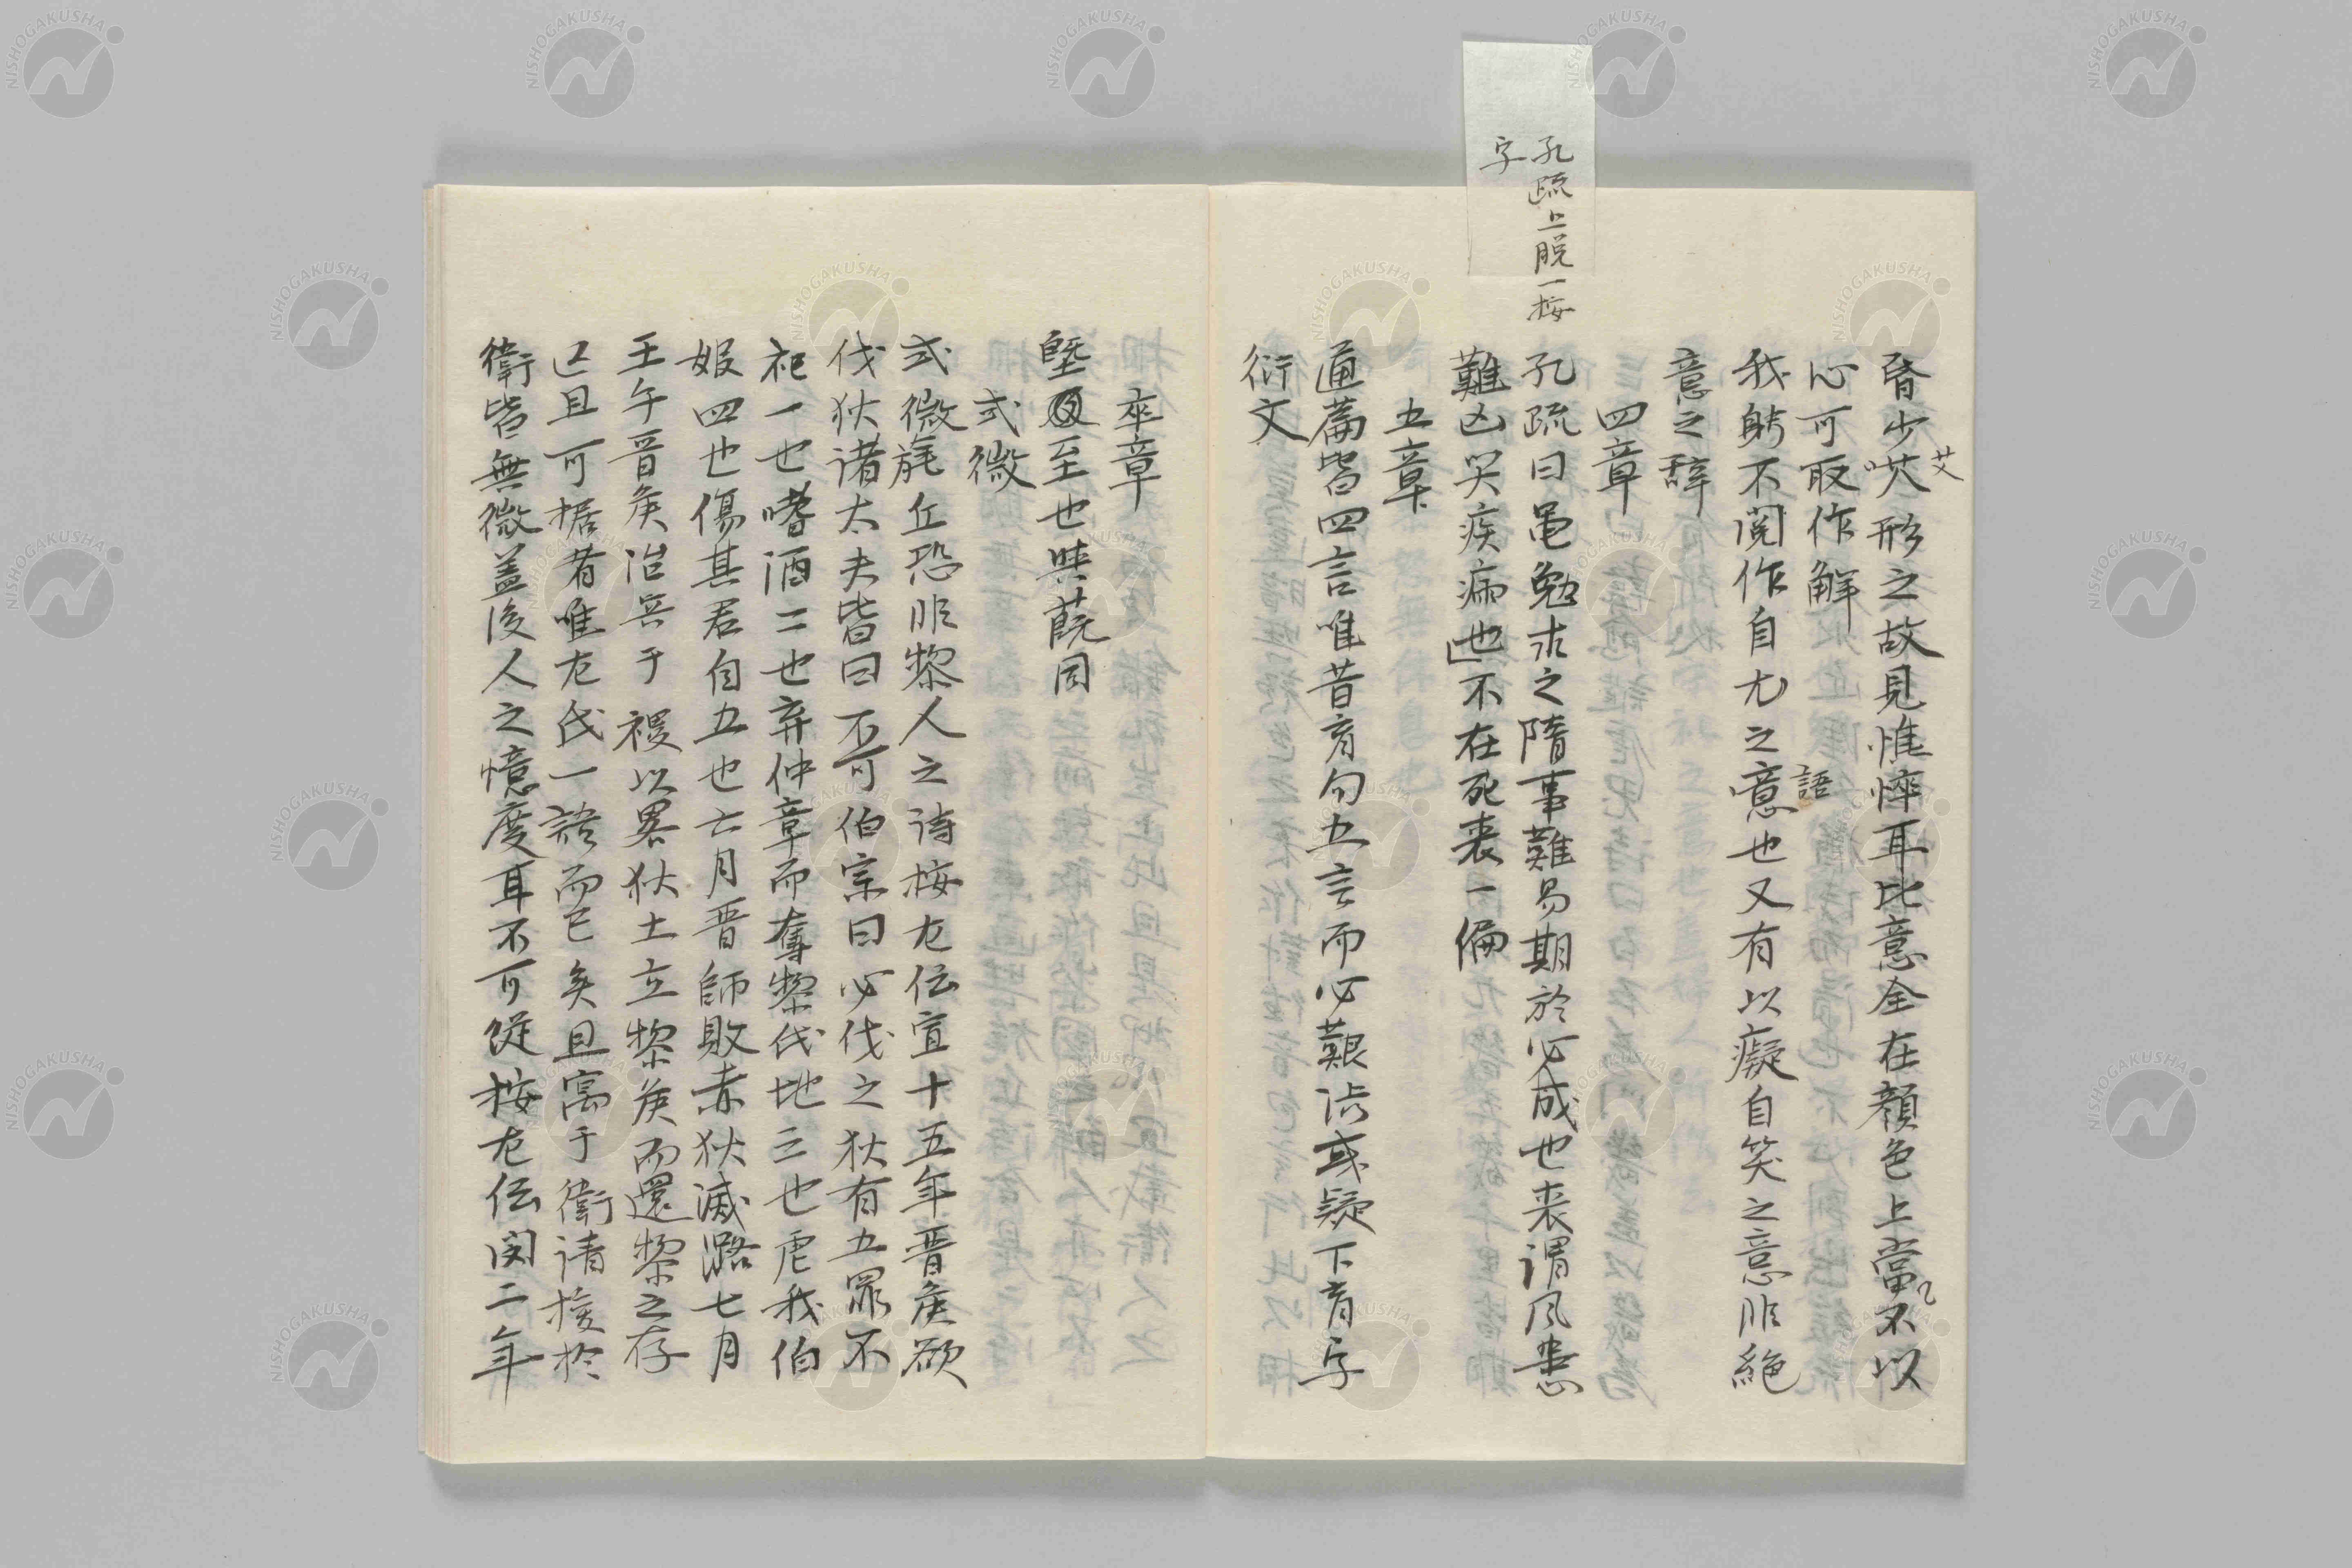 孔疏上脱一按
字
昏少艾形之故見惟悴耳比意全在顔色上當不以
心可取作解
我躬不閲作自尤之意也又有以癡自笑之意非絶
語
意之辞
四章
孔疏曰黽勉求之隋事難易期於必成也喪謂凶患
難凶哭疾病也不在死喪一偏
五章
通篇皆四言唯昔育句五言而必艱渋或疑下育字
衍文
卒章
塈至也與蔇同
式微
式微旄丘恐非黎人之詩按左伝宣十五年晋侯欲
伐狄諸大夫皆曰不可伯宗曰必伐之狄有五罪不
祀一也嗜酒二也弃仲章而奪黎氏地三也虐我伯
姫四也傷其君自五也六月晋師敗赤狄滅潞七月
壬午晋侯治兵于稷以畧狄土立黎侯而還黎之存
亡且可据者唯左氏一語而已矣且寓于衛請援於
衛皆無徴蓋後人之憶度耳不可従按左伝閔二年
NISHOGAKUSHA